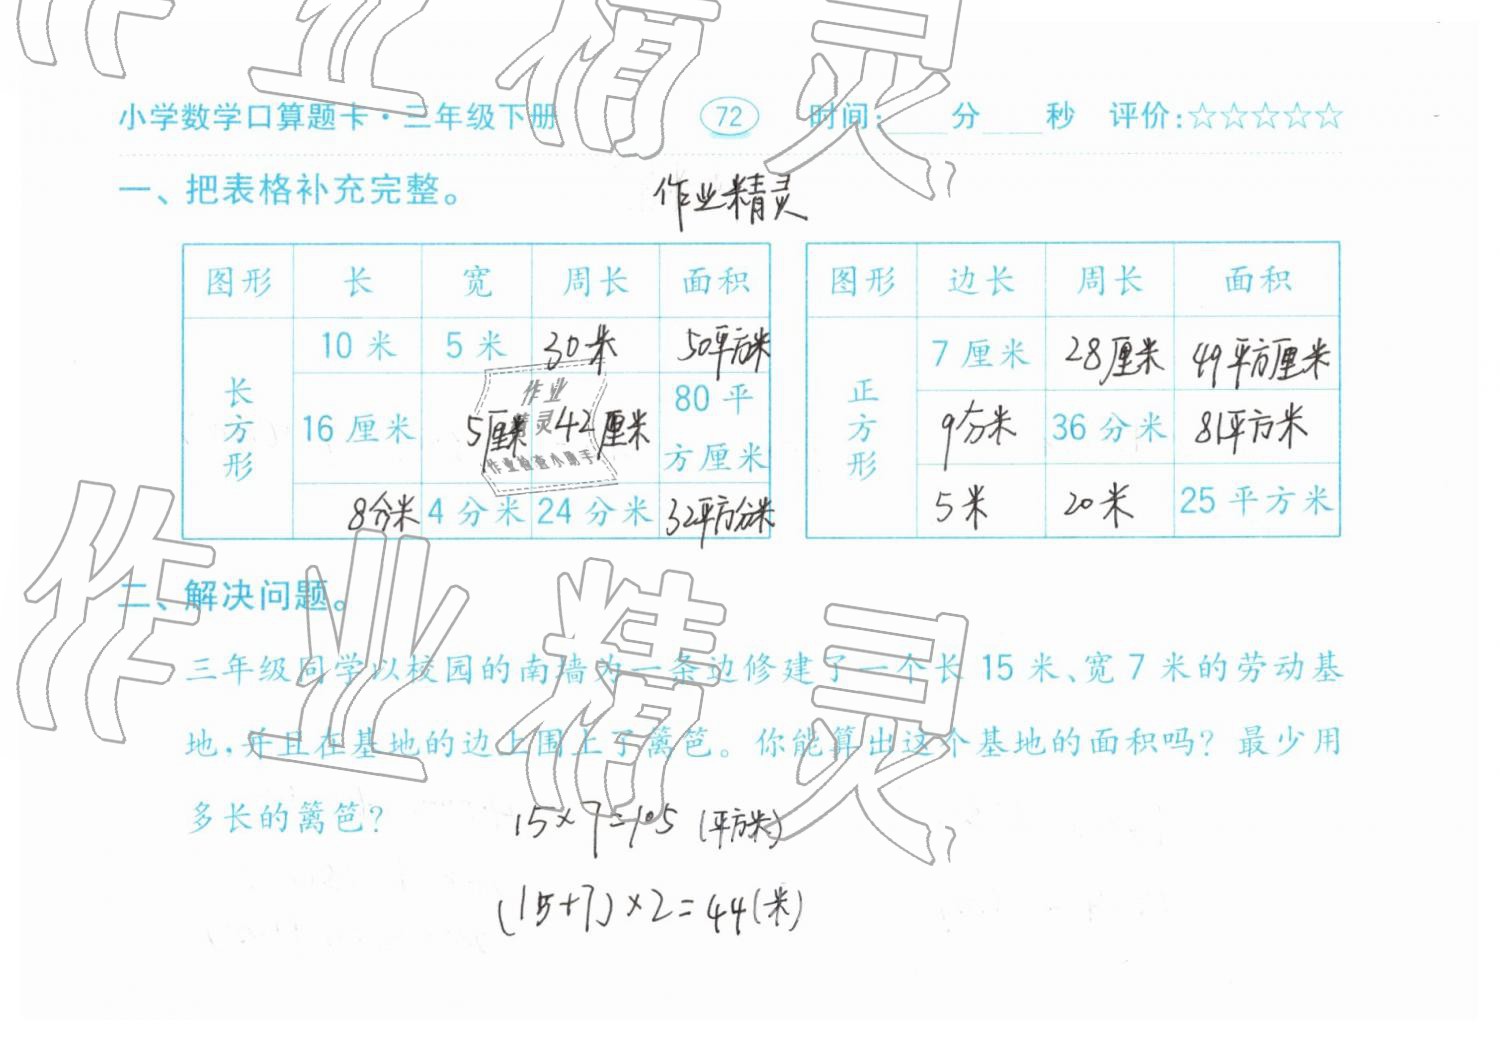 小学数学口算题卡·三年级下册 72 时间:___分___秒 评价:☆☆☆☆☆
一、把表格补充完整。 作业精灵
图形 长 宽 周长 面积
长方形 10米 5米 30米 50平方米
16厘米 5厘米 42厘米 80平方厘米
8分米 4分米 24分米 32平方分米
图形 边长 周长 面积
正方形 7厘米 28厘米 49平方厘米
9分米 36分米 81平方米
5米 20米 25平方米
作业
精灵
作业检查小助手
二、解决问题。
三年级同学以校园的南墙为一条边修建了一个长15米、宽7米的劳动基
地,并且在基地的边上围上了篱笆。你能算出这个基地的面积吗?最少用
多长的篱笆?
15×7=105(平方米)
(15+7)×2=44(米)
作业精灵
作业精灵